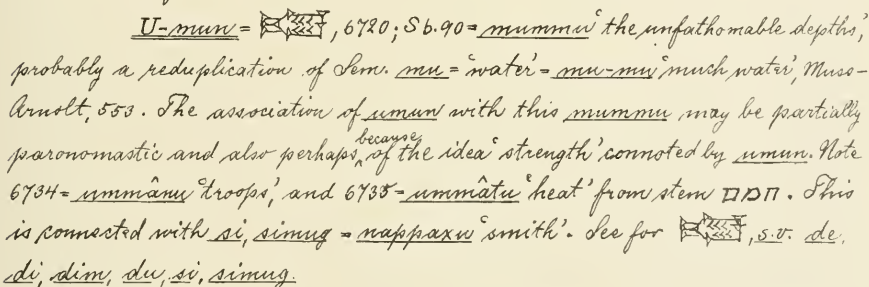 U-mun = , 6720; Sb. 90 = mummu 'the unfathomable depths',
probably a reduplication of Sem. mu = 'water' = mu-mu 'much water', Muss-
Arnolt, 553. The association of umun with this mummu may be partially
paronomastic and also perhaps because of the idea 'strength' connoted by umun. Note
6734 = ummânu 'troops', and 6735 = ummâtu 'heat' from stem חמם. This
is connected with si, simug = nappaxu 'smith'. See for , s.v. de,
di, dim, du, si, simug.